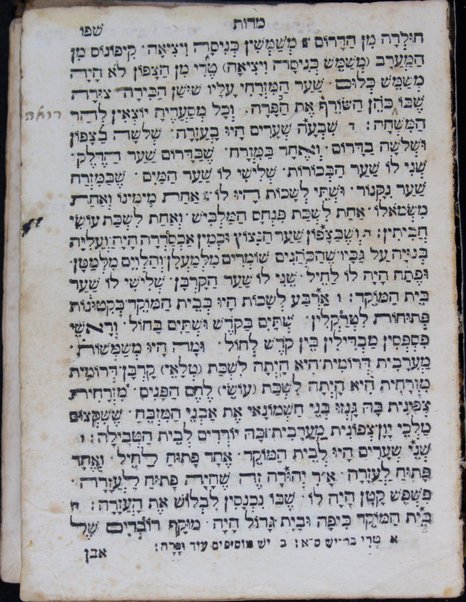 מדות שפו
חולדה מן הדרום משמשין כניסה ויציאה קיפונוס מן
המערב (משמש כניסה ויציאה) טדי מן הצפון לא היה
משמש כלום שער המזרחי עליו שושן הבירה צורה
שבו כהן השורף את הפרה וכל מסעדיה יוצאין להר
המשחה: ד שבעה שערים היו בעזרה שלשה בצפון
ושלשה בדרום ואחד במזרח שבדרום שער הדלק
שני לו שער הבכורות שלישי לו שער המים שבמזרח
שער נקנור ושתי לשכות היו לו אחת מימינו ואחת
משמאלו אחת לשכת פנחס המלביש ואחת לשכת עושי
חביתין: ה ושבצפון שער הנצוץ וכמין אכסדרה היה ועליה
בנויה על גביו שהכהנים שומרים מלמעלן והלוים מלמטן
ופתח היה לו לחיל שני לו שער הקרבן שלישי לו שער
בית המוקד: ו ארבע לשכות היו בבית המוקד כקטונות
פתוחות לטרקלין שתים בקדש ושתים בחול וראשי
פספסין מבדילין בין קדש לחול ומה היו משמשות
מערבית דרומית היא היתה לשכת (טלאי) קרבן דרומית
מזרחית היא היתה לשכת (עושי) לחם הפנים מזרחית
צפונית בה גנזו בני חשמונאי את אבני המזבח ששקצום
מלכי יון צפונית מערבית בה יורדים לבית הטבילה: ז
שני שערים היו לבית המוקד אחד פתוח לחיל ואחד
פתוח לעזרה א״ר יהודה זה שהיה פתוח לעזרה
פשפש קטן היה לו שבו נכנסין לבלוש את העזרה: ח
בית המוקד כיפה ובית גדול היה מוקף רובדים של
א טרי בר־יש ס״א: ב יש מוסיפים עיר ופרה:
אבן